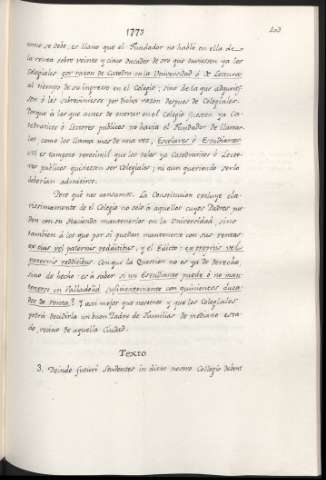 1773
como se debe, es llano que el Fundador no habló en ella de
la renta sobre veinte y cinco ducados de oro que tuviesen ya los
Colegiales por razon de Catedra en la Universidad ó de Lectura
al tiempo de su ingreso en el Colegio; sino de la que adquirie
sen ó les sobreviniera por dicha razon despues de Colegiales.
Porque à los que antes de entrar en el Colegio fuesen ya Ca
tedraticos ó Lectores publicos no havia el Fundador de llamar
los, como los llama mas de una vez, Escolares ó Estudiantes
ni es tampoco verosimil que los tales ya Catedraticos ó Lecto
res publicos quisiesen ser Colegiales; ni aun queriendo serlo
deberian admitirse.
Pero què nos cansamos. La Constitucion excluye cla
risimamente de el Colegio no solo à aquellos cuyos Padres pue
den con su Hacienda mantenerlos en la Universidad, sino
tambien à los que por sì puedan mantenerse con sus rentas
ex eius vel paternis redditibus; y el Edicto: ex propriis vel
paternis redditibus. Conque la Question no es ya de derecho,
sino de hecho: es à saber, si un Estudiante puede ó no man
tenerse en Valladolid suficientemente con quinientos duca
dos de renta? Y así mejor que nosotros y que los Colegiales
podrà decidirla un buen Padre de Familias de mediano esta
do, vecino de aquella Ciudad.
Texto
3. Deinde futuri Studentes in dicto nostro Collegio debent